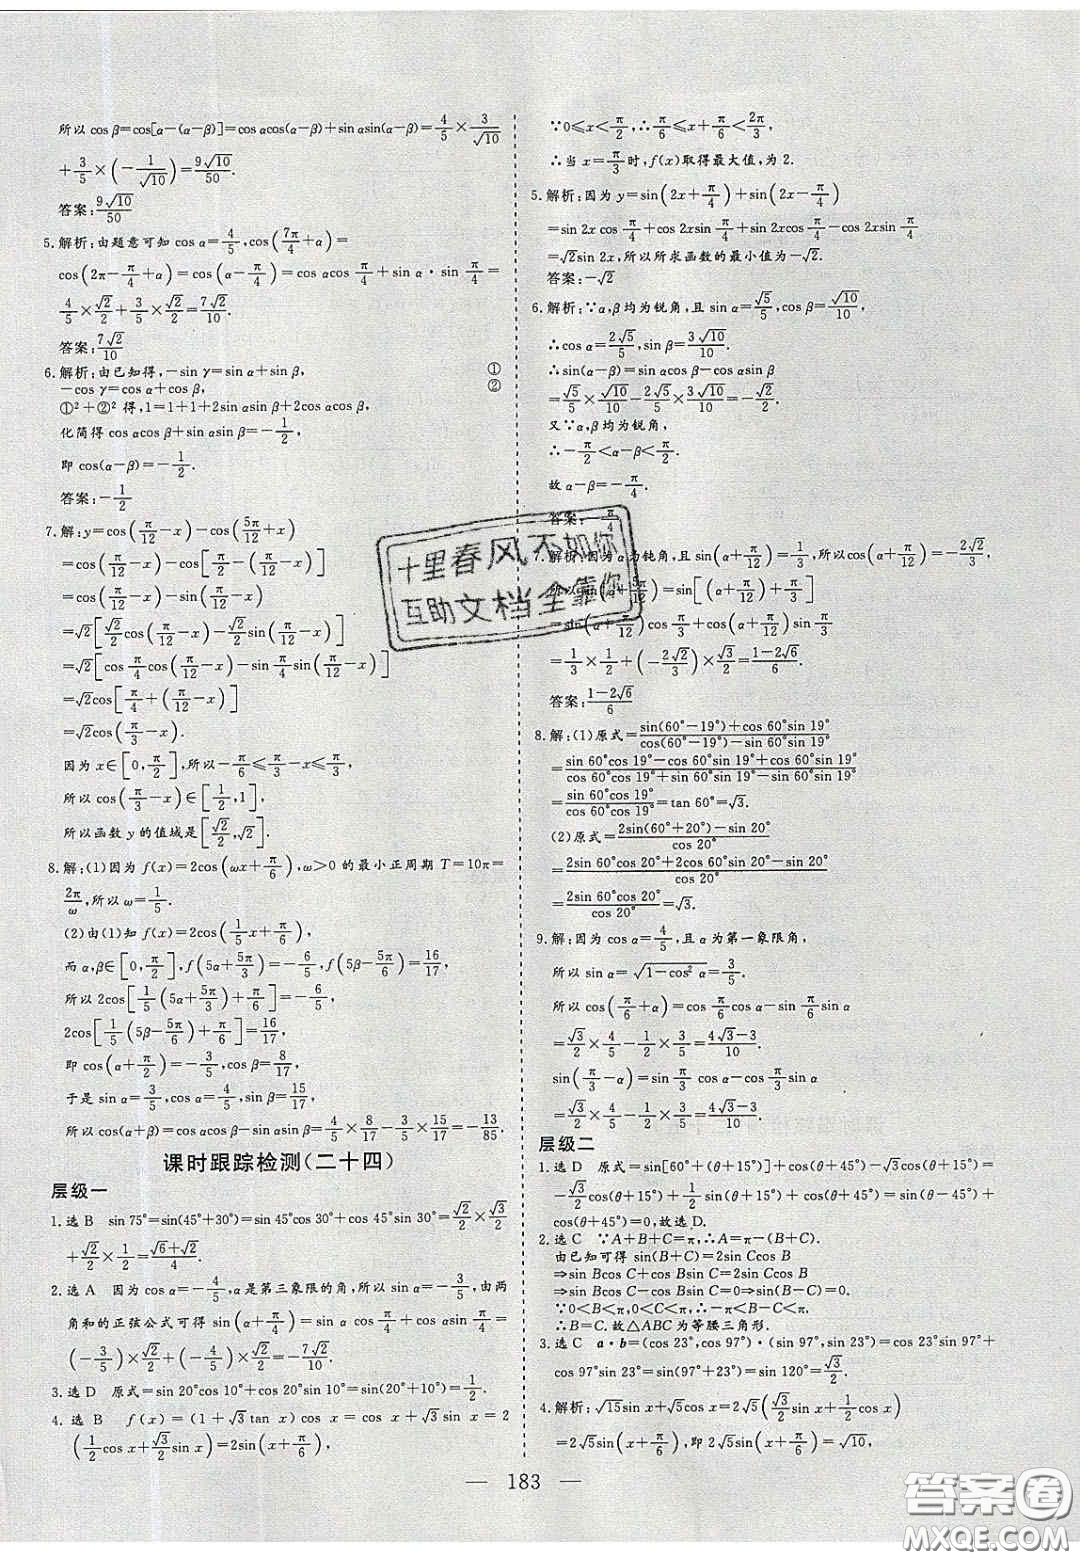 所以cos β=cos[α-(α-β)]=cos αcos(α-β)+sin αsin(α-β)=4/5×3/√10
+3/5×(-1/√10)=9√10/50.
答案:9√10/50
5.解析:由题意可知cos α=4/5,cos(7π/4+α)=
cos(2π-π/4+α)=cos(α-π/4)=cos αcos π/4+sin α·sin π/4=
4/5×√2/2+3/5×√2/2=7√2/10.
答案:7√2/10
6.解析:由已知得,-sin γ=sin α+sin β, ①
-cos γ=cos α+cos β, ②
①²+②²得,1=1+1+2sin αsin β+2cos αcos β,
化简得cos αcos β+sin αsin β=-1/2,
即cos(α-β)=-1/2.
答案:-1/2
7.解:y=cos(π/12-x)-cos(5π/12+x)
=cos(π/12-x)-cos[π/2-(π/12-x)]
=cos(π/12-x)-sin(π/12-x)
=√2[√2/2cos(π/12-x)-√2/2sin(π/12-x)]
=√2[cos π/4cos(π/12-x)-sin π/4sin(π/12-x)]
=√2cos[π/4+(π/12-x)]
=√2cos(π/3-x).
因为x∈[0,π/2],所以-π/6≤π/3-x≤π/3,
所以cos(π/3-x)∈[1/2,1],
所以函数y的值域是[√2/2,√2].
8.解:(1)因为f(x)=2cos(ωx+π/6),ω>0的最小正周期T=10π=
2π/ω,所以ω=1/5.
(2)由(1)知f(x)=2cos(1/5x+π/6),
而α,β∈[0,π/2],f(5α+5π/3)=-6/5,f(5β-5π/6)=16/17,
所以2cos[1/5(5α+5π/3)+π/6]=-6/5,
2cos[1/5(5β-5π/6)+π/6]=16/17,
即cos(α+π/2)=-3/5,cos β=8/17,
于是sin α=3/5,cos α=4/5,sin β=15/17,
所以cos(α+β)=cos αcos β-sin αsin β=4/5×8/17-3/5×15/17=-13/85.
课时跟踪检测(二十四)
层级一
1.选B sin 75°=sin(45°+30°)=sin 45°cos 30°+cos 45°sin 30°=√2/2×√3/2
+√2/2×1/2=(√6+√2)/4.
2.选A 因为cos α=-4/5,α是第三象限的角,所以sin α=-3/5,由两
角和的正弦公式可得sin(α+π/4)=sin αcos π/4+cos αsin π/4=(-
3/5)×√2/2+(-4/5)×√2/2=-7√2/10.
3.选D 原式=sin 20°cos 10°+cos 20°sin 10°=sin(20°+10°)=1/2.
4.选B f(x)=(1+√3tan x)cos x=cos x+√3sin x=2
(1/2cos x+√3/2sin x)=2sin(x+π/6),
∵0≤x<π/2,∴π/6≤x+π/6<2π/3,
∴当x=π/3时,f(x)取得最大值,为2.
5.解析:因为y=sin(2x+π/4)+sin(2x-π/4)
=sin 2xcos π/4+cos 2xsin π/4+sin 2xcos π/4-cos 2xsin π/4
=√2sin 2x,所以所求函数的最小值为-√2.
答案:-√2
6.解析:∵α,β均为锐角,且sin α=√5/5,cos β=√10/10,
∴cos α=2√5/5,sin β=3√10/10.
∴sin(α-β)=sin αcos β-cos αsin β
=√5/5×√10/10-2√5/5×3√10/10=-√2/2.
又∵α,β均为锐角,
∴-π/2<α-β<π/2.
故α-β=-π/4.
答案:-π/4
7.解析:因为α为钝角,且sin(α+π/12)=1/3,所以cos(α+π/12)=-2√2/3,
所以sin(α+5π/12)=sin[(α+π/12)+π/3]
=sin(α+π/12)cos π/3+cos(α+π/12)sin π/3
=1/3×1/2+(-2√2/3)×√3/2=(1-2√6)/6.
答案:(1-2√6)/6
8.解:(1)原式=(sin(60°-19°)+cos 60°sin 19°)/(cos(60°-19°)-sin 60°sin 19°)
=(sin 60°cos 19°-cos 60°sin 19°+cos 60°sin 19°)/(cos 60°cos 19°+sin 60°sin 19°-sin 60°sin 19°)
=(sin 60°cos 19°)/(cos 60°cos 19°)=tan 60°=√3.
(2)原式=(2sin(60°+20°)-sin 20°)/cos 20°
=(2sin 60°cos 20°+2cos 60°sin 20°-sin 20°)/cos 20°
=(2sin 60°cos 20°)/cos 20°=√3.
9.解:因为cos α=4/5,且α为第一象限角,
所以sin α=√(1-cos² α)=3/5.
所以cos(π/6+α)=cos π/6cos α-sin π/6sin α
=√3/2×4/5-1/2×3/5=(4√3-3)/10.
sin(π/3-α)=sin π/3cos α-cos π/3sin α
=√3/2×4/5-1/2×3/5=(4√3-3)/10.
层级二
1.选D 原式=sin[60°+(θ+15°)]+cos(θ+45°)-√3cos(θ+15°)=-
√3/2cos(θ+15°)+1/2sin(θ+15°)+cos(θ+45°)=sin(θ-45°)+
cos(θ+45°)=0,故选D.
2.选C ∵A+B+C=π,∴A=π-(B+C).
由已知可得sin(B+C)=2sin Ccos B
⇒sin Bcos C+cos Bsin C=2sin Ccos B
⇒sin Bcos C-cos Bsin C=0⇒sin(B-C)=0.
∵0<B<π,0<C<π,∴-π<B-C<π.
∴B=C.故△ABC为等腰三角形.
3.选C a·b=(cos 23°,cos 97°)·(sin 97°,sin 23°)=cos 23°sin 97°+
cos 97°sin 23°=sin(97°+23°)=sin 120°=√3/2.
4.解析:√15sin x+√5cos x=2√5(√3/2sin x+1/2cos x)
=2√5sin(x+π/6),即2√5sin(x+π/6)=√10,
十里春风不如你
互助文档全靠你
— 183 —
答案圈
MXQE.COM